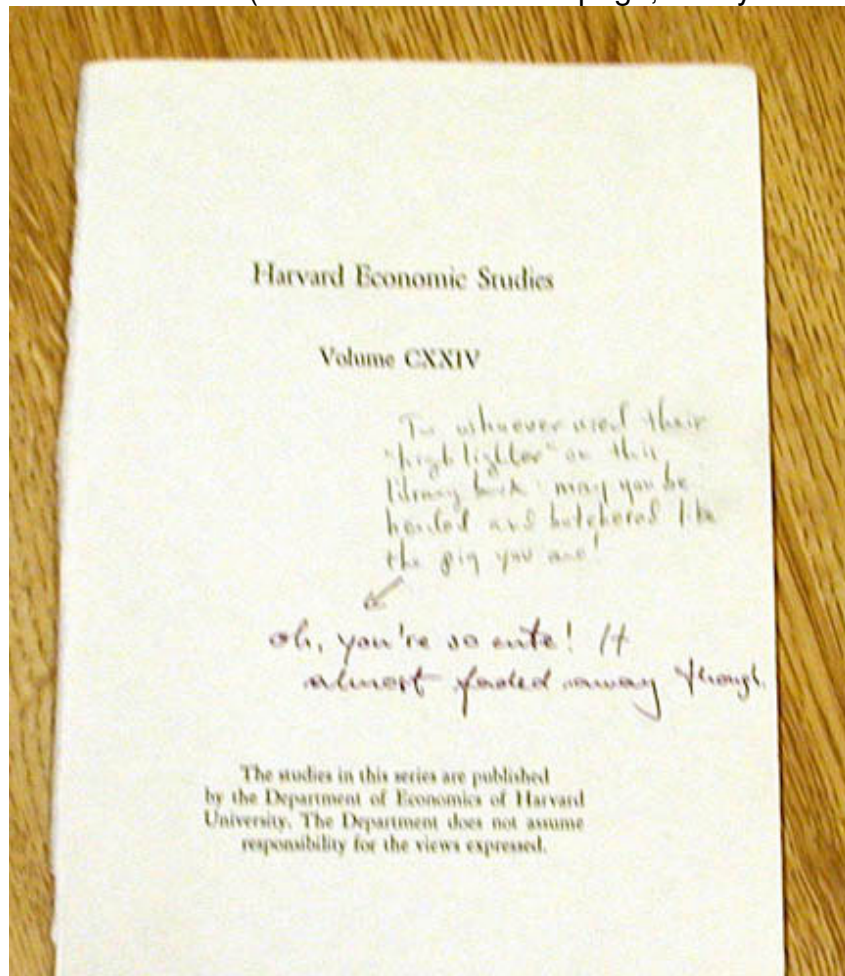 Harvard Economic Studies
Volume CXXIV
To whoever used their
"highlighter" on this
library book: may you be
hunted and butchered like
the pig you are!
oh, you're so cute! It
almost faded away though.
The studies in this series are published
by the Department of Economics of Harvard
University. The Department does not assume
responsibility for the views expressed.